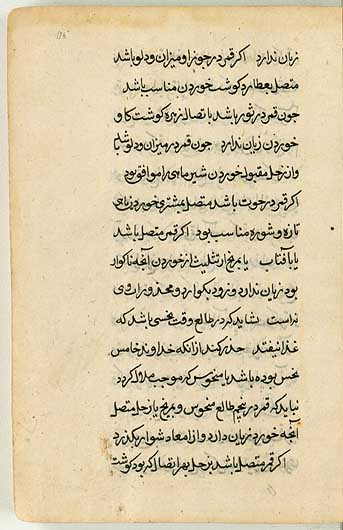 زیان ندارد اکر قمر در جوزا و میزان و دلو باشد
متصل بعطارد کوشت خوردن مناسب باشد
چون قمر در ثور باشد باتصال زهره کوشت کاو
خوردن زیان ندارد چون قمر در میزان و دلو باشد
و از زحل مقبول خوردن شیر ماهی را موافق بود
اکر قمر در حوت باشد متصل بمشتری خوردن
تازه و شوره مناسب بود اکر قمر متصل باشد
یا بآفتاب یا بمریخ از تثلیث از خوردن آنچه ناکوار
بود زیان ندارد و زود بکوارد و محذور
نراست نشاید که در طالع وقت نحسی باشد که
غذا نیفتد حذر کند از انکه خداوند خامس
نحس بوده باشد یا منحوس که موجب ملال کردد
نباید که قمر در پنجم طالع منحوس و بمریخ یا زحل متصل
آنچه خورد زیان دارد و از امعا دشوار بکذرد
اکر قمر متصل باشد بزحل بهر اتصال که بود کوشت